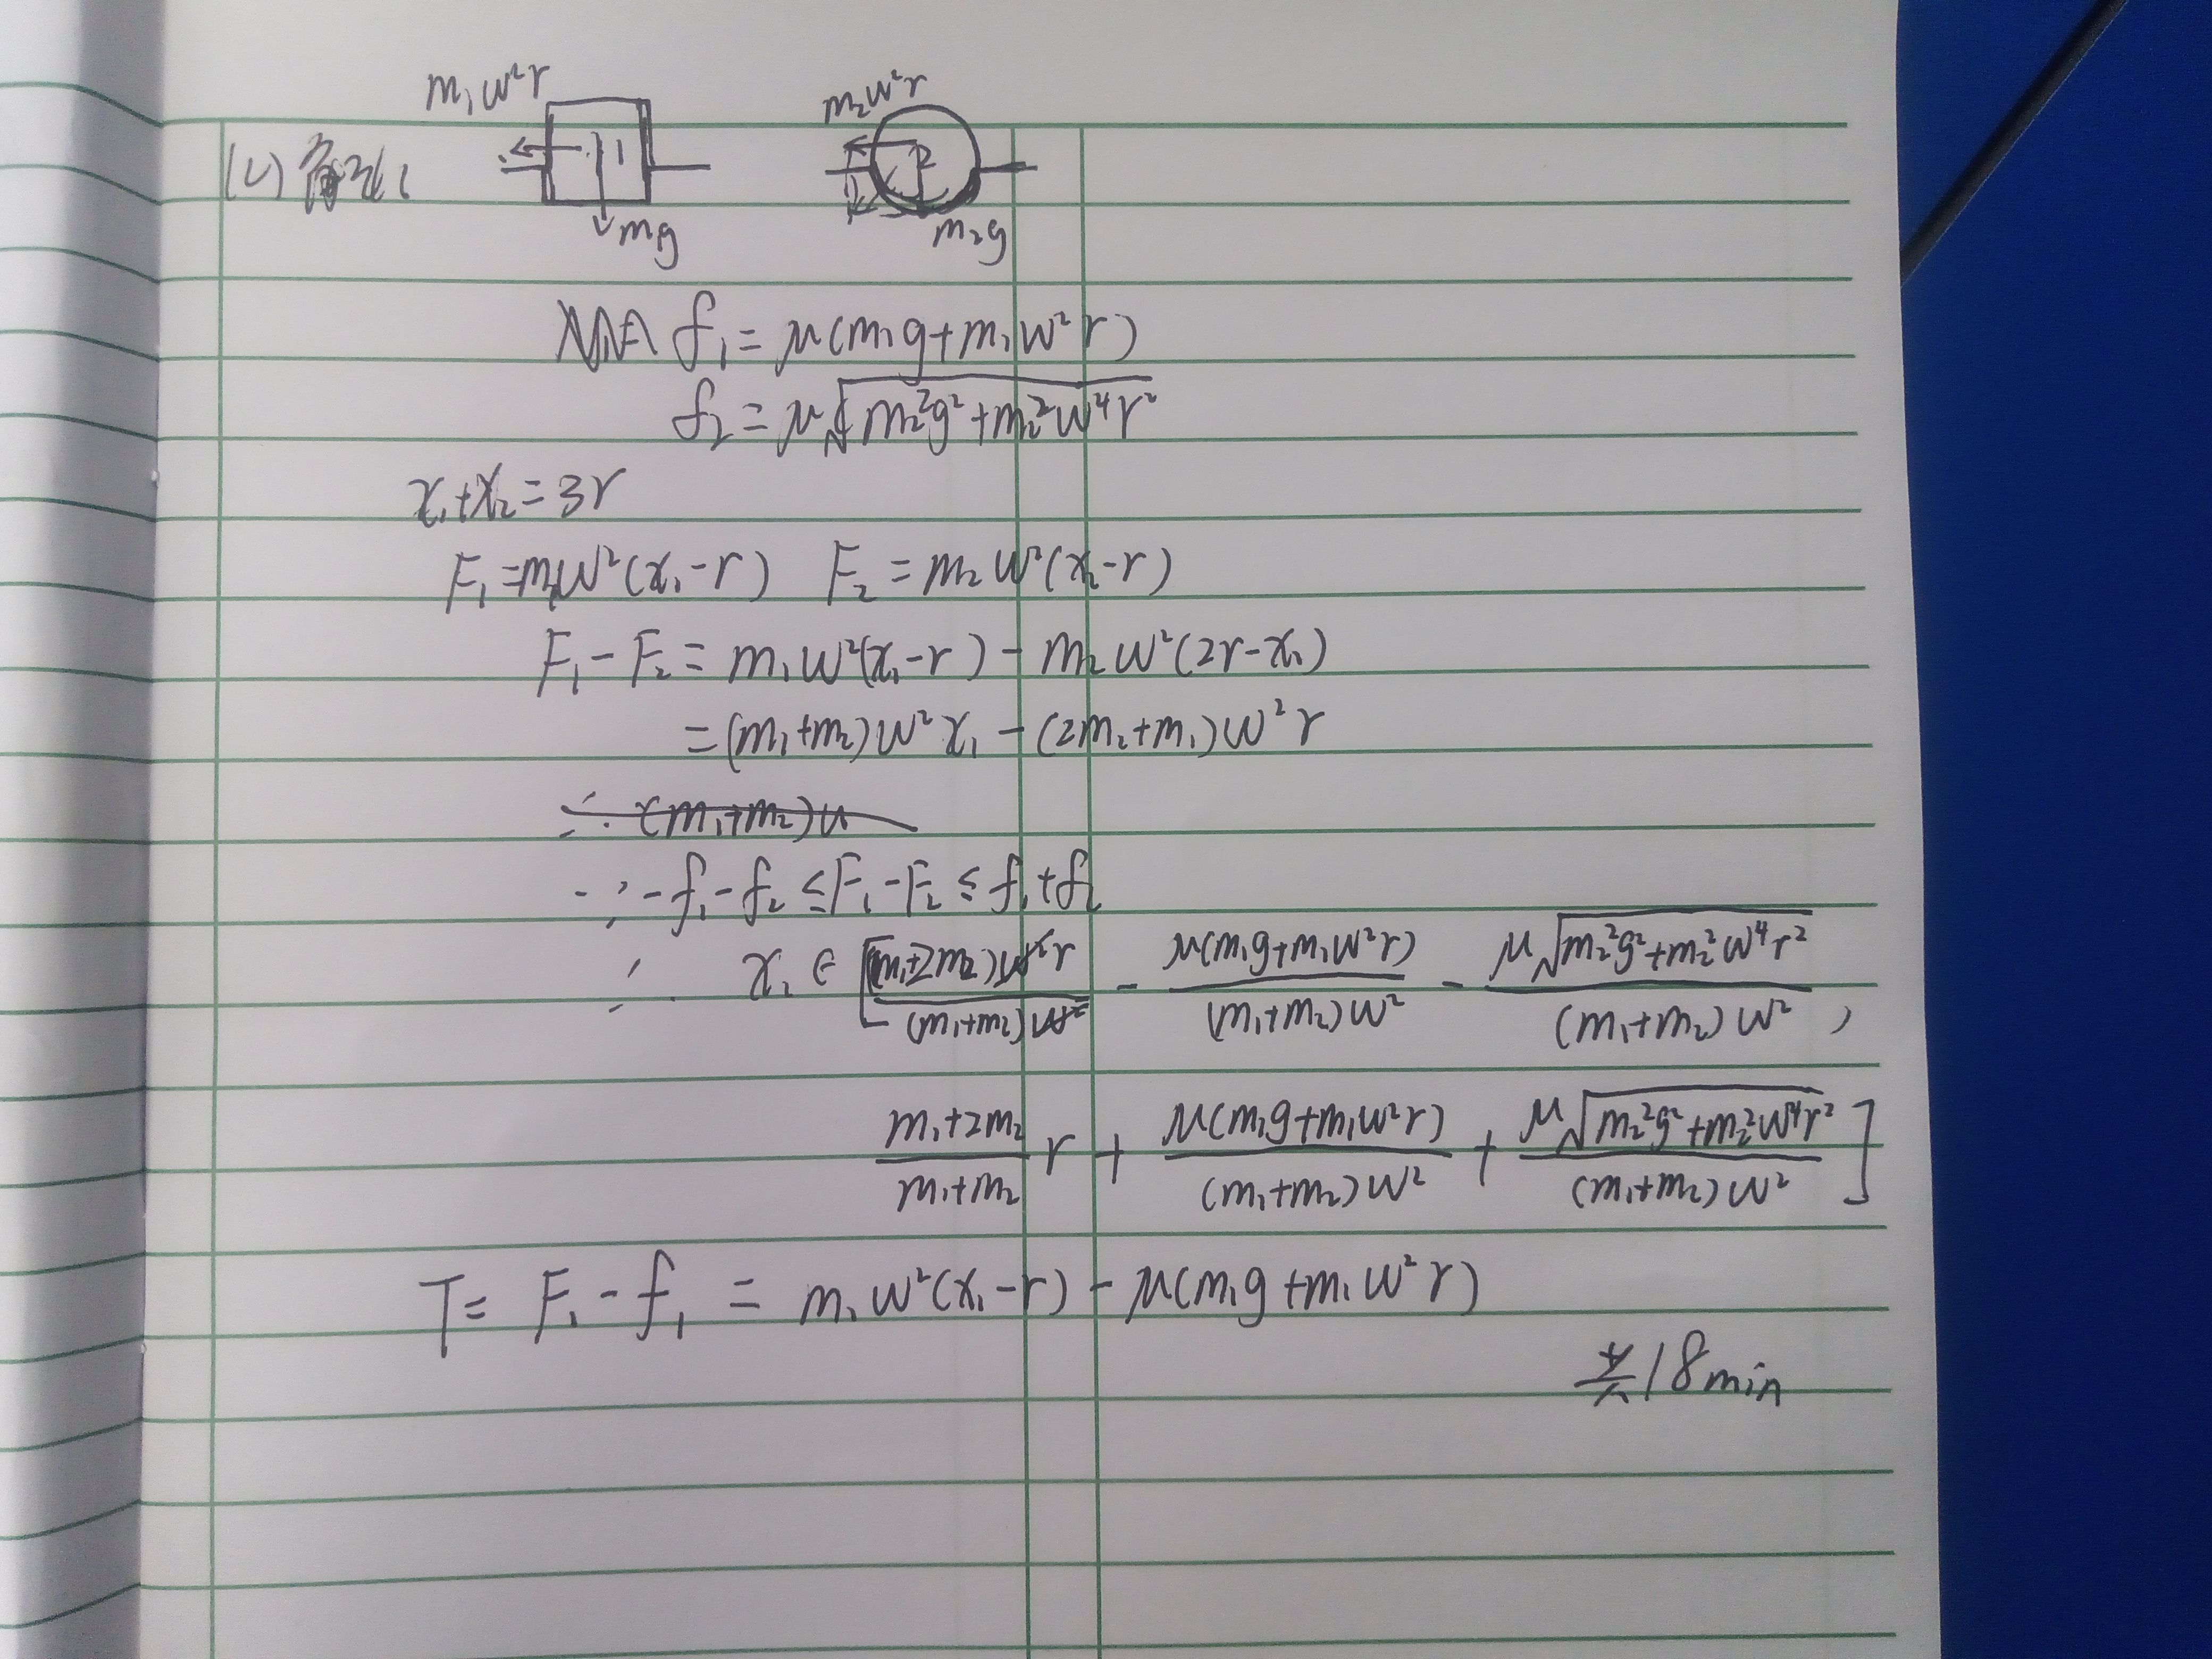 m₁ω²r m₂ω²r
(2) 1 2
mg m₂g
f₁=μ(m₁g+m₁ω²r)
f₂=μ√(m₂²g²+m₂²ω⁴r²)
x₁+x₂=3r
F₁=m₁ω²(x₁-r) F₂=m₂ω²(x₂-r)
F₁-F₂=m₁ω²(x₁-r)-m₂ω²(2r-x₁)
=(m₁+m₂)ω²x₁-(2m₂+m₁)ω²r
∵ -f₁-f₂≤F₁-F₂≤f₁+f₂
∴ x₁∈[(m₁+2m₂)ω²r/(m₁+m₂)ω² - μ(m₁g+m₁ω²r)/(m₁+m₂)ω² - μ√(m₂²g²+m₂²ω⁴r²)/(m₁+m₂)ω² ,
(m₁+2m₂)/(m₁+m₂) r + μ(m₁g+m₁ω²r)/(m₁+m₂)ω² + μ√(m₂²g²+m₂²ω⁴r²)/(m₁+m₂)ω²]
T=F₁-f₁=m₁ω²(x₁-r)-μ(m₁g+m₁ω²r)
共18min